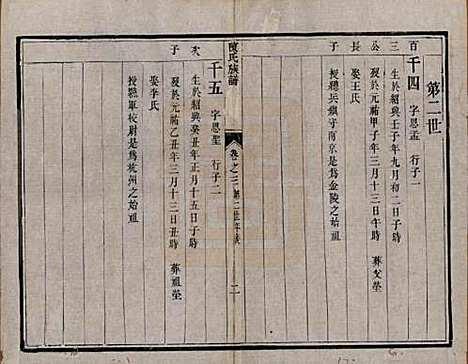 第二世
百三公長子
千四 字思孟 行子一
生於紹興壬子年九月初二日子時
歿於元祐甲子年三月十三日午時 葬父塋
娶王氏
授總兵鎮守南京是為金陵之始祖
陳氏族譜
卷之三 第二世年表
二
次子
千五 字思聖 行子二
生於紹興癸丑年正月十五日子時
歿於元祐乙丑年三月十三日丑時 葬祖塋
娶李氏
授驃軍校尉是為杭州之始祖